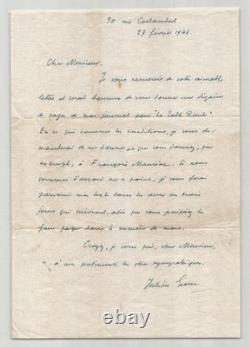 30 rue Cortambert
27 février 1948.
Cher Monsieur,
Je vous remercie de votre aimable
lettre et serai heureux de vous donner une dizaine
de pages de mon journal pour "La Table Ronde".
En ce qui concerne les conditions, je vous
demanderai de me donner ce que vous donnez, par
exemple, à François Mauriac. Si nous
sommes d'accord sur ce point, je vous ferai
parvenir mon texte dans les deux ou trois
jours qui suivront, afin que vous puissiez le
faire passer dans le numéro de mars.
Croyez, je vous prie, cher Monsieur,
à mes sentiments les plus sympathiques.
Julien Green